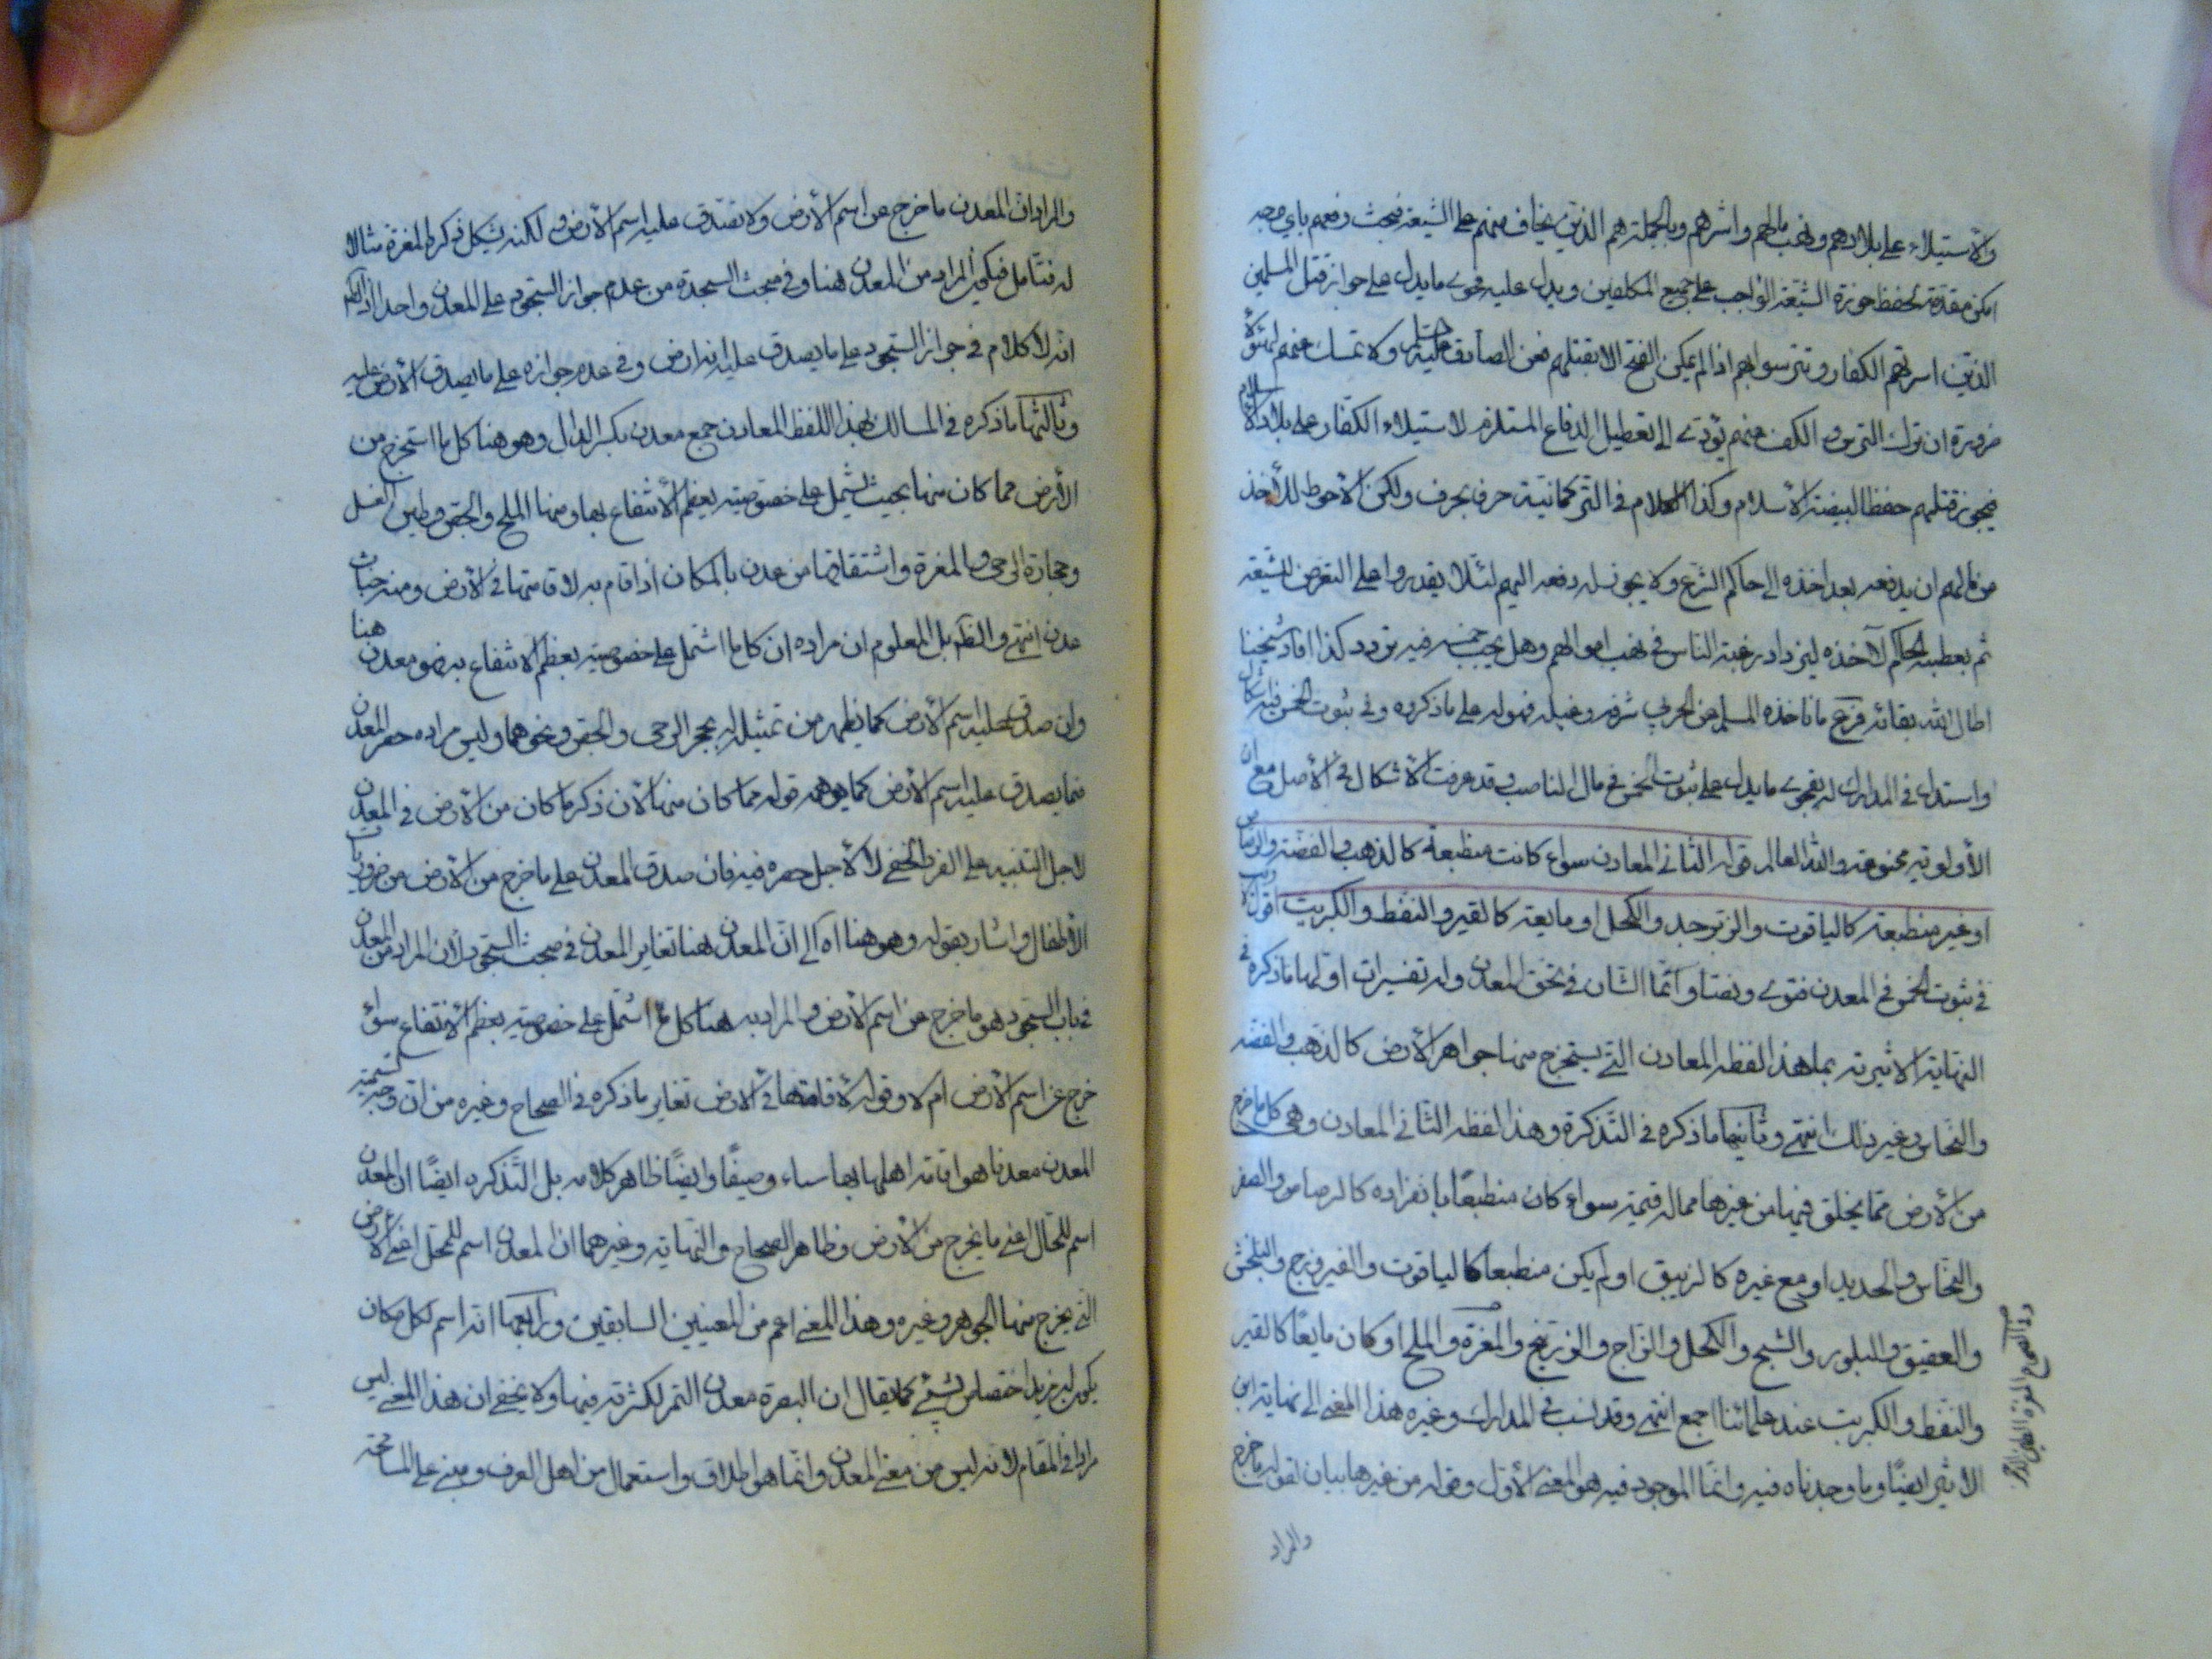 والأستيلاء على بلادهم ونهب مالهم واسرهم وبالجملة هم الذين يخاف منهم على الشيعة فيجب دفعهم باي وجه
امكن مقدمة لحفظ حوزة الشيعة الواجب على جميع المكلفين ويدل عليه فحوى ما يدل على جواز قتل المسلمين
الذين اسرتهم الكفار وتترسوا بهم اذا لم يمكن الفتح الا بقتلهم فعن الصادق ولا تمسك عنهم لهؤلاء
ضرورة ان ترك الترس والكف عنهم يؤدي الى تعطيل الدفاع المستلزم لاستيلاء الكفار على بلاد الاسلام
فيجوز قتلهم حفظا لبيضة الأسلام وكذا الكلام في التركمانية حرف بحرف ولكن الأحوط للأخذ
من مالهم ان يدفعه بعد اخذه الى حاكم الشرع ولا يجوز له دفعه اليهم لئلا يقدروا على التعرض للشيعة
ثم يعطيه الحاكم لآخذه ليزداد رغبة الناس في نهب اموالهم وهل يجب خمسه فيه تردد كذا افاد شيخنا
اطال الله بقائه فرع ما تاخذه المسلم من الحربي سرقة وغيلة فهو له على ما ذكروه وفي ثبوت الخمس فيه اشكال
واستدل في المدارك له بفحوى ما يدل على ثبوت الخمس في مال الناصب وقد عرفت الأشكال في الأصل مع ان
الأولوية ممنوعة والله العالم قوله الثاني المعادن سواء كانت منطبعة كالذهب والفضة والرصاص
او غير منطبعة كالياقوت والزبرجد والكحل او مايعة كالقير والنفط والكبريت اقول لا ريب
في ثبوت الخمس في المعدن فتوى ونصا وانما الشان في تحقق المعدن وله تفسيرات اولها ما ذكره في
النهاية الاثيرية بما هذا لفظه المعادن التي يستخرج منها جواهر الأرض كالذهب والفضة
والنحاس وغير ذلك انتهى وثانيها ما ذكره في التذكرة وهذا لفظه الثاني المعادن وهي كل ما خرج
من الأرض مما يخلق فيها من غيرها مما له قيمة سواء كان منطبعًا بانفراده كالرصاص والصفر
والنحاس والحديد او مع غيره كالزيبق او لم يكن منطبعا كالياقوت والفيروزج والبلخش
والعقيق والبلور والشبح والكحل والزاج والزرنيخ والمغرة والملح او كان مايعًا كالقير
والنفط والكبريت عند علمائنا اجمع انتهى وقد نسب في المدارك وغيره هذا المعنى الى نهاية ابن
الاثير ايضًا وما وجدناه فيه وانما الموجود فيه هو المعنى الأول وقوله من غيرها بيان لقوله ما خرج
والمراد
والمراد ان المعدن ما خرج عن اسم الأرض ولا يصدق عليه اسم الأرض لكنه يشكل ذكر المغرة مثالا
له فتامل فيكون المراد من المعدن هنا وفي مبحث السجدة من عدم جواز السجود على المعدن واحدا
انه لا كلام في جواز السجود على ما يصدق عليه انه ارض وفي عدم جوازه على ما يصدق الأرض عليه
وثالثها ما ذكره في المسالك بهذا اللفظ المعادن جمع معدن بكسر الدال وهو هنا كل ما استخرج من
الأرض مما كان منها بحيث يشتمل على خصوصية يعظم الأنتفاع بها ومنها الملح والجص وطين الغسل
وحجارة الرحى والمغرة واشتقاقها من عدن بالمكان اذا اقام به لاقامتها في الأرض ومنه جنات
عدن انتهى والظاهر بل المعلوم ان مراده ان كلما اشتمل على خصوصية يعظم الانتفاع به فهو معدن هنا
وان صدق عليه اسم الأرض كما يظهر من تمثيله بحجر الرحى والجص ونحوهما وليس مراده حصر المعدن
فيما يصدق عليه اسم الأرض كما يوهمه قوله مما كان منها لأن ذكر ما كان من الأرض في المعدن
لاجل التنبيه على الفرد الخفي لا لأجل حصره فيه فان صدق المعدن على ما خرج من الأرض من ضروريات
الأطفال واشار بقوله وهو هنا اه الى ان المعدن هنا تغاير المعدن في مبحث السجود لان المراد من المعدن
في باب السجود هو ما خرج عن اسم الأرض والمراد به هنا كل ما اشتمل على خصوصية يعظم الأنتفاع سواء
خرج عن اسم الأرض ام لا وقوله لأقامتها في الارض تغاير ما ذكره في الصحاح وغيره من ان وجه تسمية
المعدن معدنا هو اقامة اهلها بها شتاء وصيفًا وايضًا ظاهر كلامه بل التذكره ايضًا ان المعدن
اسم للحال اعني ما يخرج من الأرض وظاهر الصحاح والنهاية وغيرهما ان المعدن اسم للمحل اعني الأرض
التي يخرج منها الجوهر وغيره وهذا المعنى اعم من المعنيين السابقين ورابعها انه اسم لكل مكان
يكون له مزيد اختصاص بشيء كما يقال ان البصرة معدن التمر لكثرته فيها ولا يخفى ان هذا المعنى ليس
مرادا في المقام لانه ليس من معنى المعدن وانما هو اطلاق واستعمال من اهل العرف ومبني على المسامحة